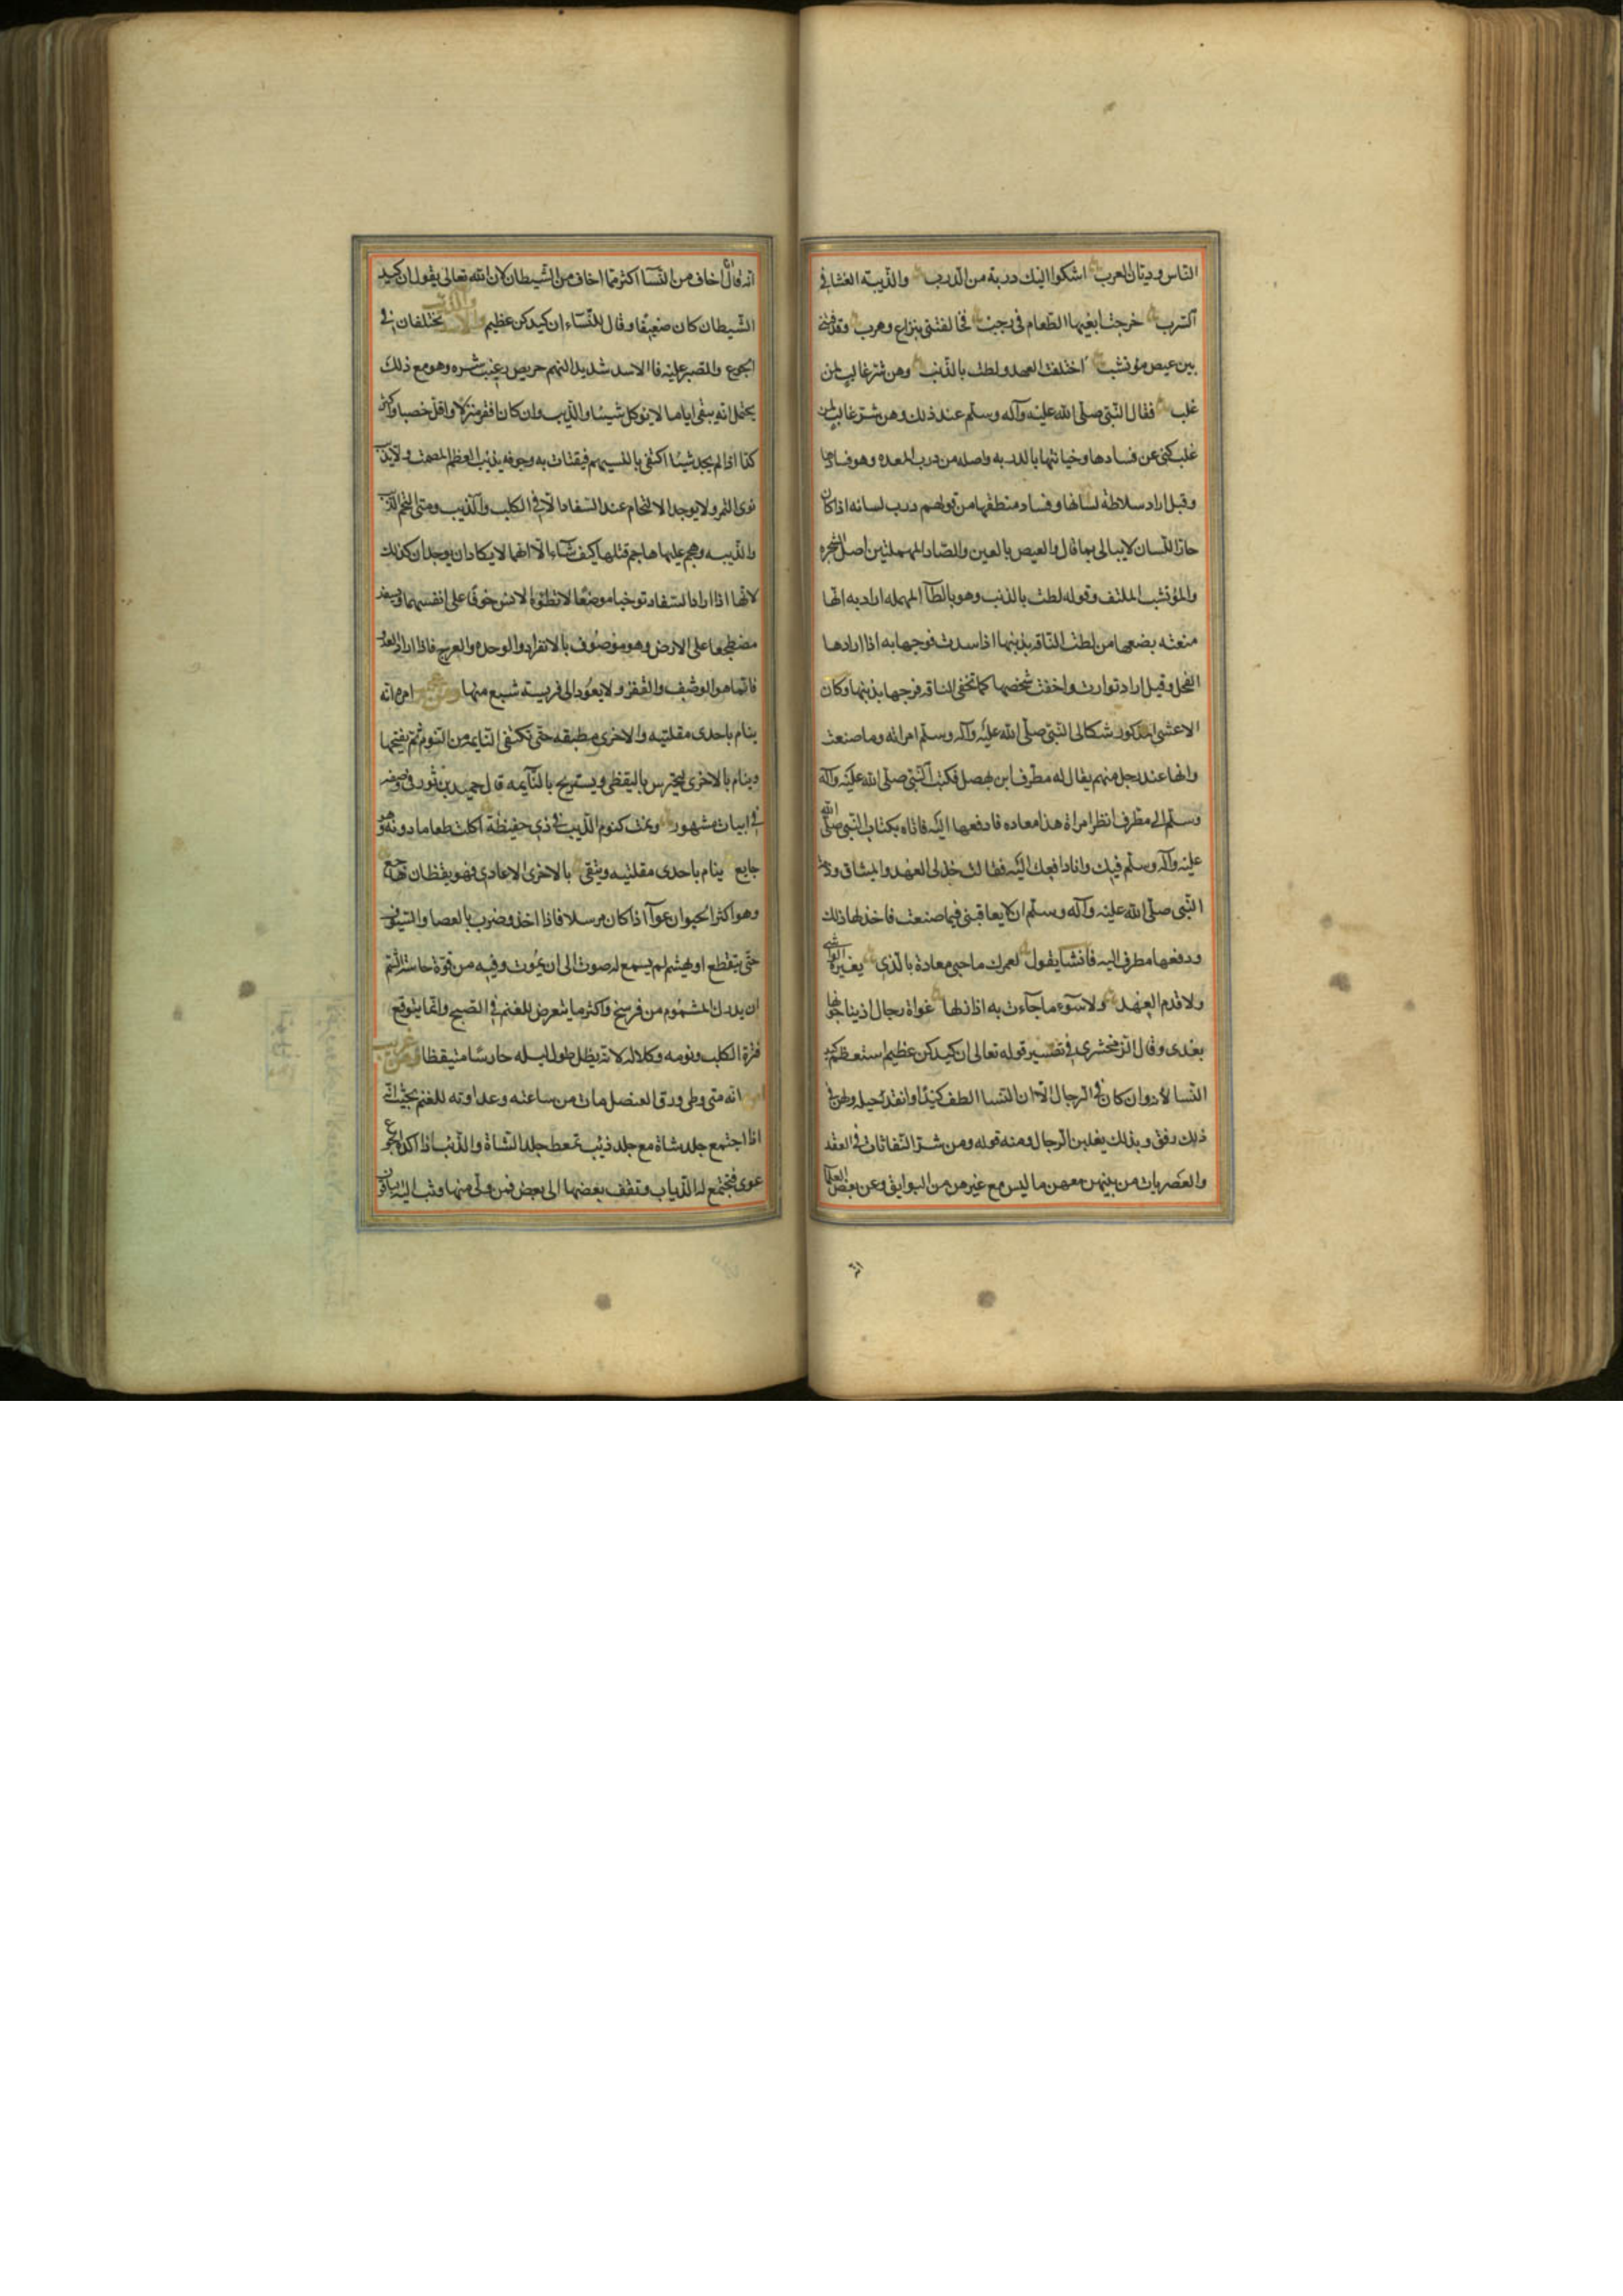 الناس وديان العرب اشكوا اليك دربة من الدرب والذيبة الغشا في
السرب خرجت ابغيها الطعام في رجب فخالفتني بنزاع وهرب وقذفتني
بين عيص مؤتشب اختلفت العهد ولطت بالذنب وهن شر غالب لمن
غلب فقال النبي صلى الله عليه وآله وسلم عند ذلك وهن شر غالب لمن
غلب كنى عن فسادها وخيانتها بالدربه واصله من درب المعده وهو فسادها
وقيل اراد سلاطة لسانها وفساد منطقها من قولهم درب لسانه اذا كان
حاد اللسان لا يبالى بما قال والعيص بالعين والصاد المهملتين اصل الشجره
والمؤتشب الملتف وقوله لطت بالذنب وهو بالطآ المهمله اراد به انها
منعته بضعها من لطت الناقه بذنبها اذا سدت فرجها به اذا ارادها
الفحل وقيل اراد توارت واخفت شخصها كما تخفى الناقه فرجها بذنبها وكان
الاعشى المذكور شكا الى النبى صلى الله عليه وآله وسلم امراته وما صنعت
وانها عند رجل منهم يقال له مطرف ابن بهصل فكتب النبى صلى الله عليه وآله
وسلم الى مطرف انظر امراة هذا معاده فادفعها اليه فاتاه بكتاب النبى صلى الله
عليه وآله وسلم فيك وانا دافعك اليه فقالت خذ لى العهد والميثاق وذمة
النبى صلى الله عليه وآله وسلم ان لا يعاقبنى فيما صنعت فاخذ لها ذلك
ودفعها مطرف اليه فانشا يقول لعمرك ما حبى معادة بالذى يغيره الواشى
ولا قدم العهد ولا سوء ما جآءت به اذ ازلها غواة رجال اذ يناجونها
بعدى وقال الزمخشرى فى تفسير قوله تعالى ان كيدكن عظيم استعظم كيد
النسا لانه وان كان فى الرجال الا ان النسا الطف كيدا وانفذ حيله ولهن فى
ذلك رفق وبذلك يغلبن الرجال ومنه قوله ومن شر النفاثات فى العقد
والعصريات من بينهن معهن ما ليس مع غيرهن من البوايق وعن بعض العلما
انه قال اخاف من النسآ اكثر مما اخاف من الشيطان لان الله تعالى يقول ان كيد
الشيطان كان ضعيفا وقال للنسآء ان كيدكن عظيم يختلفان فى
الجوع والصبر عليه فاالاسد شديد النهم حريص رغيب شره وهو مع ذلك
يحتمل انه يبقى اياما لا يوكل شيئا والذيب وان كان اقفر منزلا واقل خصبا واكثر
كدا اذا لم يجد شيئا اكتفى بالنسيم فيقتات به وجوفه يذيب العظم المصمت ولا يذيب
نوى التمر ولا يوجد الالتحام عند السفاد الا فى الكلب والذيب ومتى التحم الذيب
والذيبه وهجم عليهما هاجم قتلها كيف شآء الا انهما لا يكادان يوجدان كذلك
لانهما اذا ارادا السفاد توخيا موضعا لا تطئوه الانس خوفا على انفسهما ويسفد
مضطجعا على الارض وهو موصوف بالانفراد والوحده والعرج فاذا اراد العدو
فانما هو الوشب والقفز ولا يعود الى فريسة شبع منها امره انه
ينام باحدى مقلتيه والاخرى مطبقه حتى تكتفى النايمه من النوم ثم يفتحها
وينام بالاخرى ليحترس باليقظى ويستريح بالنآيمه قال حميد بن ثور فى وصفه
فى ابيات مشهور ونمت كنوم الذيب فى ذى حفيظة اكلت طعاما دونه وهو
جايع ينام باحدى مقلتيه ويتقى بالاخرى الاعادى فهو يقظان هاجع
وهو اكثر الحيوان عوآ اذا كان مرسلا فاذا اخذ وضرب بالعصا والسيوف
حتى يتقطع او يهشم لم يسمع له صوت الى ان يموت وفيه من قوة حاسة الشم
ان يدرك المشموم من فرسخ واكثر ما يتعرض للغنم فى الصبح وانما يتوقع
فترة الكلب ونومه وكلاله لانه يظل طول ليله حارسا متيقظا ومن غريب
انه متى وطى ورق العنصل مات من ساعته وعداوته للغنم بحيث انه
اذا اجتمع جلد شاة مع جلد ذئب تمعط جلد الشاة والذئب اذا اكده الجوع
عوى فتجتمع له الذياب وتقف بعضها الى بعض فمن ولى منها وثب اليه الباقون